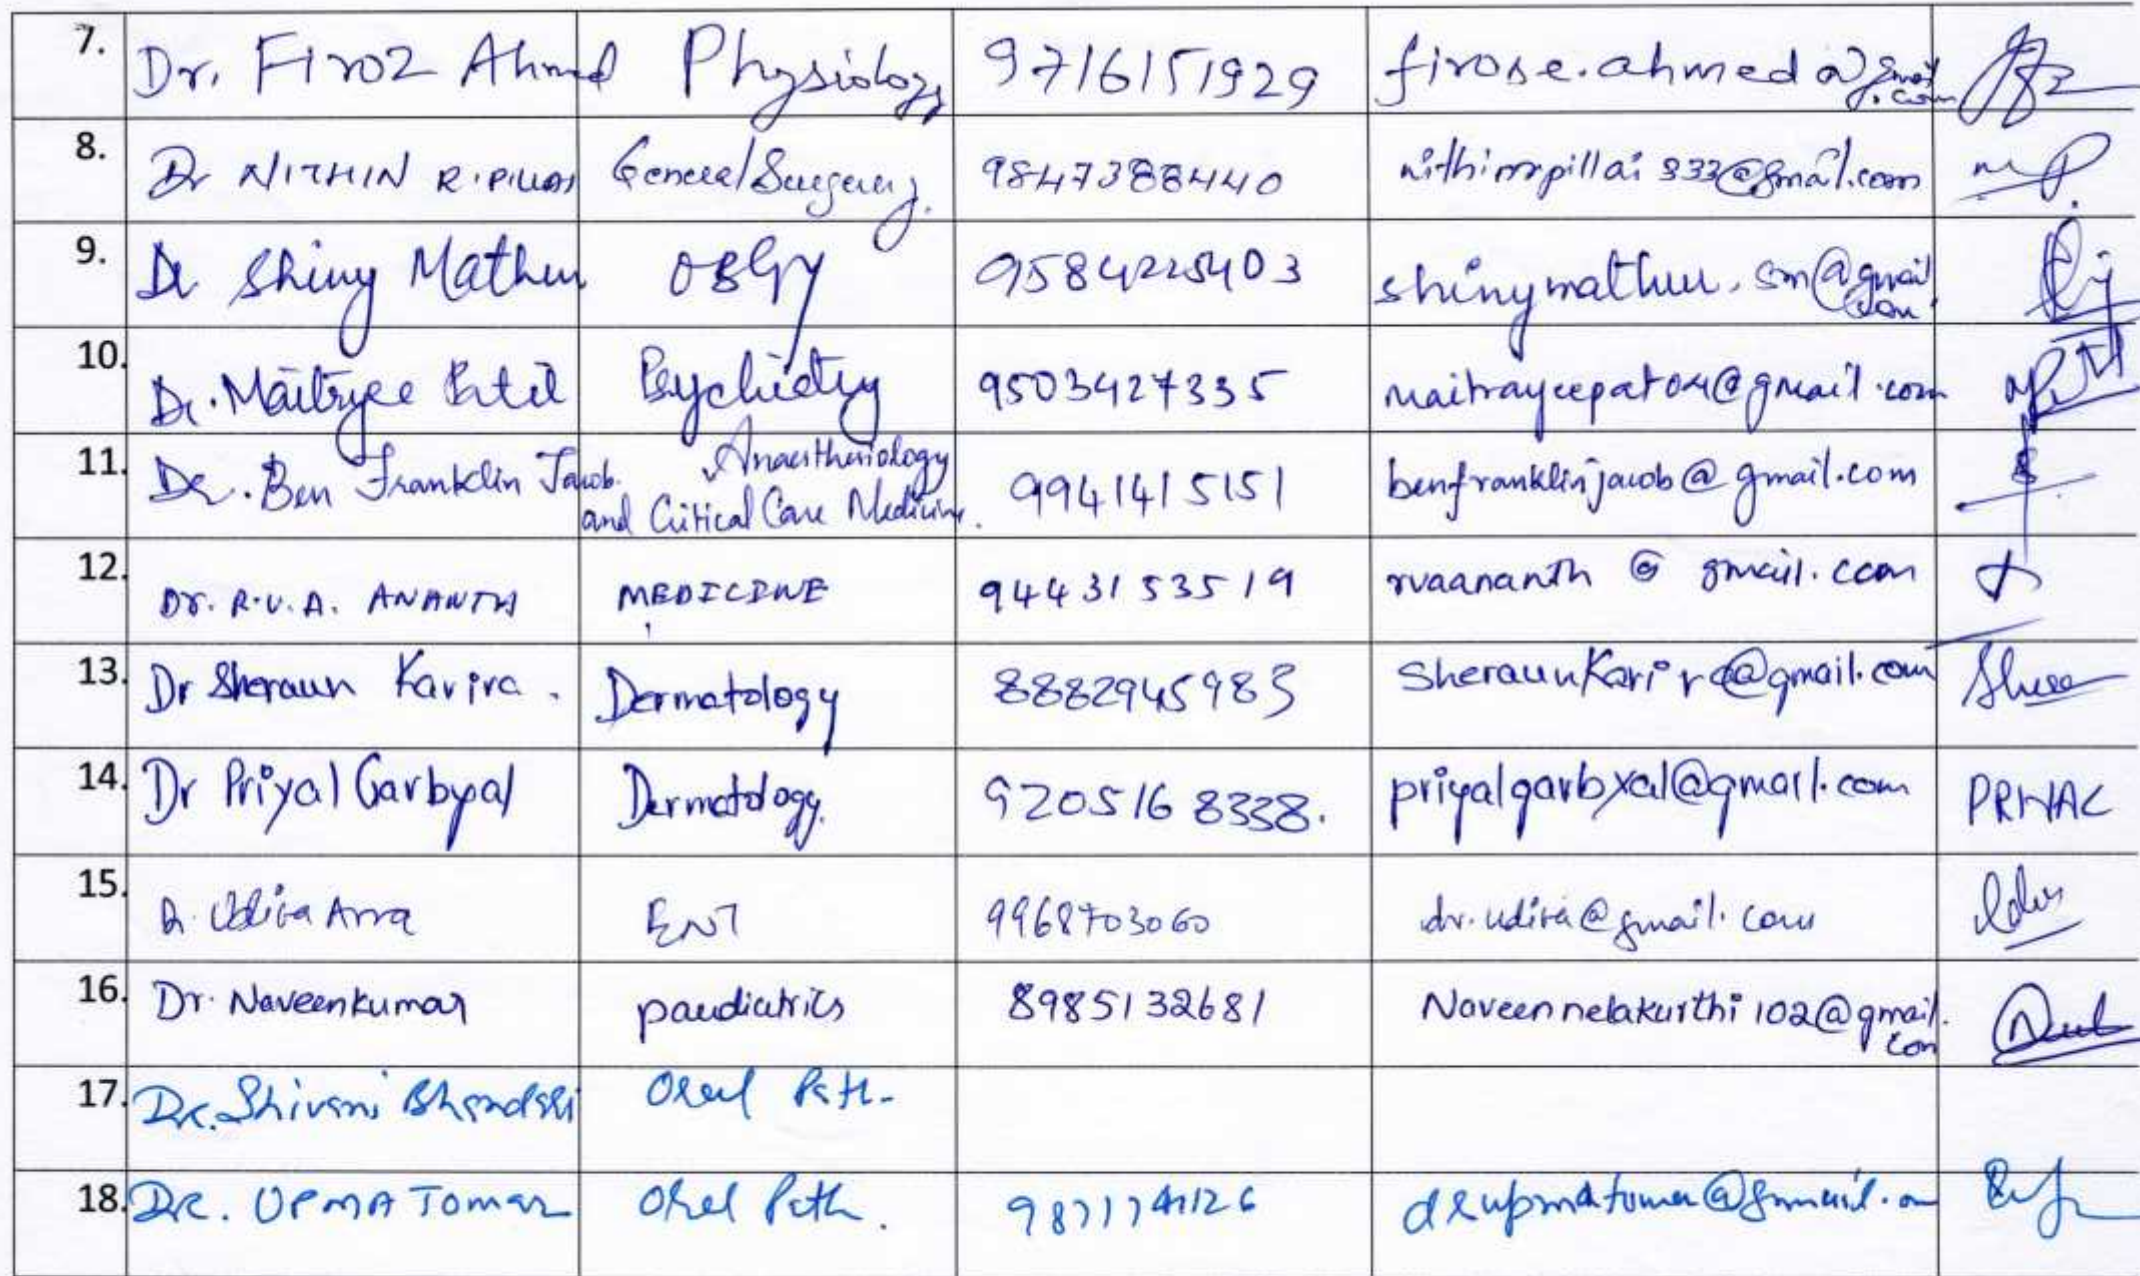 7. Dr. Firoz Ahmad Physiology 9716151929 firose.ahmed@gmail.com
8. Dr NITHIN R.PILLAI General Surgery. 9847388440 nithinrpillai833@gmail.com
9. Dr Shiny Mathew OBGY 9584225403 shinymathew.sm@gmail.com
10. Dr. Maitryee Patil Psychiatry 9503427335 maitrayeepat04@gmail.com
11. Dr. Ben Franklin Jacob. Anaesthesiology and Critical Care Medicine. 9941415151 benfranklinjacob@gmail.com
12. Dr. R.V.A. ANANTH MEDICINE 9443153519 rvaananth@gmail.com
13. Dr Sheraun Karira. Dermatology 8882945983 Sheraunkarira@gmail.com
14. Dr Priyal Garbyal Dermatology. 9205168338. priyalgarbyal@gmail.com PRIYAL
15. Dr. Udita Arora ENT 9968703060 dr.udita@gmail.com
16. Dr. Naveenkumar paediatrics 8985132681 Naveennelakurthi102@gmail.com
17. Dr. Shivani Bhandari Oral Path.
18. DR. UPMA TOMAR Oral Path. drupmatomar@gmail.com